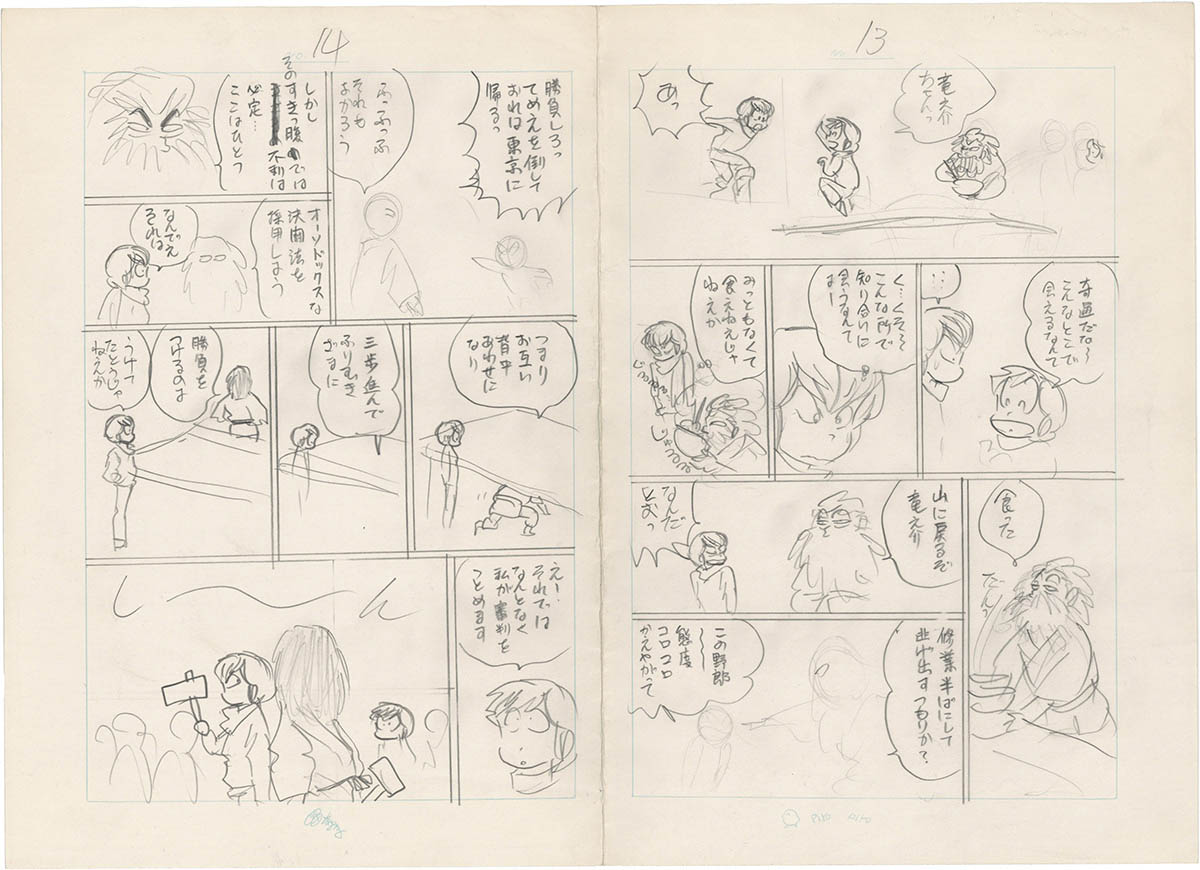 13
竜介
ちゃんっ
あっ
奇遇だな〜
こんなとこで
会えるなんて
…
く…くそ〜
こんな所で
知り合いに
会うなんて
みっともなくて
食えねえじゃ
ねえか
じゅるるる
食った
だんっ
山に戻るぞ
竜之介
なんだ
とおっ
修業半ばにして
逃げ出すつもりか?
この野郎
〜
態度
コロコロ
かえやがって
PIYO PIYO
14
勝負しろっ
てめえを倒して
おれは東京に
帰るっ
ふっふっふ
それも
よかろう
しかし
そのすきっ腹では
不利は
必定…
ここはひとつ
オーソドックスな
決闘法を
採用しよう
なんでえ
それは
つまり
お互い
背中
あわせに
なり
三歩進んで
ふりむき
ざまに
勝負を
つけるのは
うけて
たとうじゃ
ねえか
えー
それでは
なんとなく
私が審判を
つとめます
し〜ん